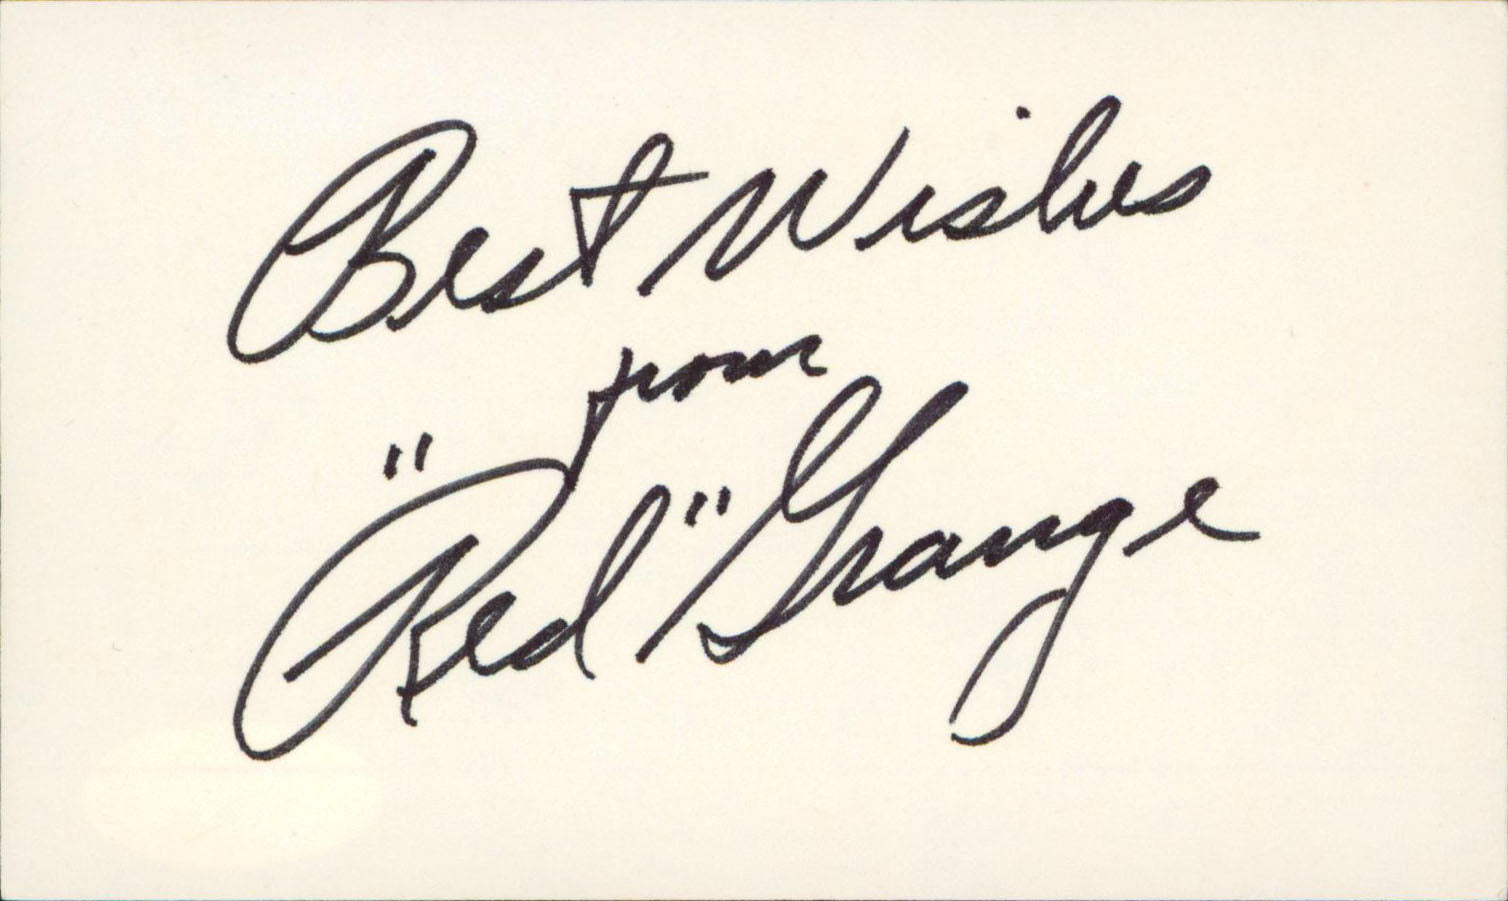 Best Wishes
from
"Red" Grange